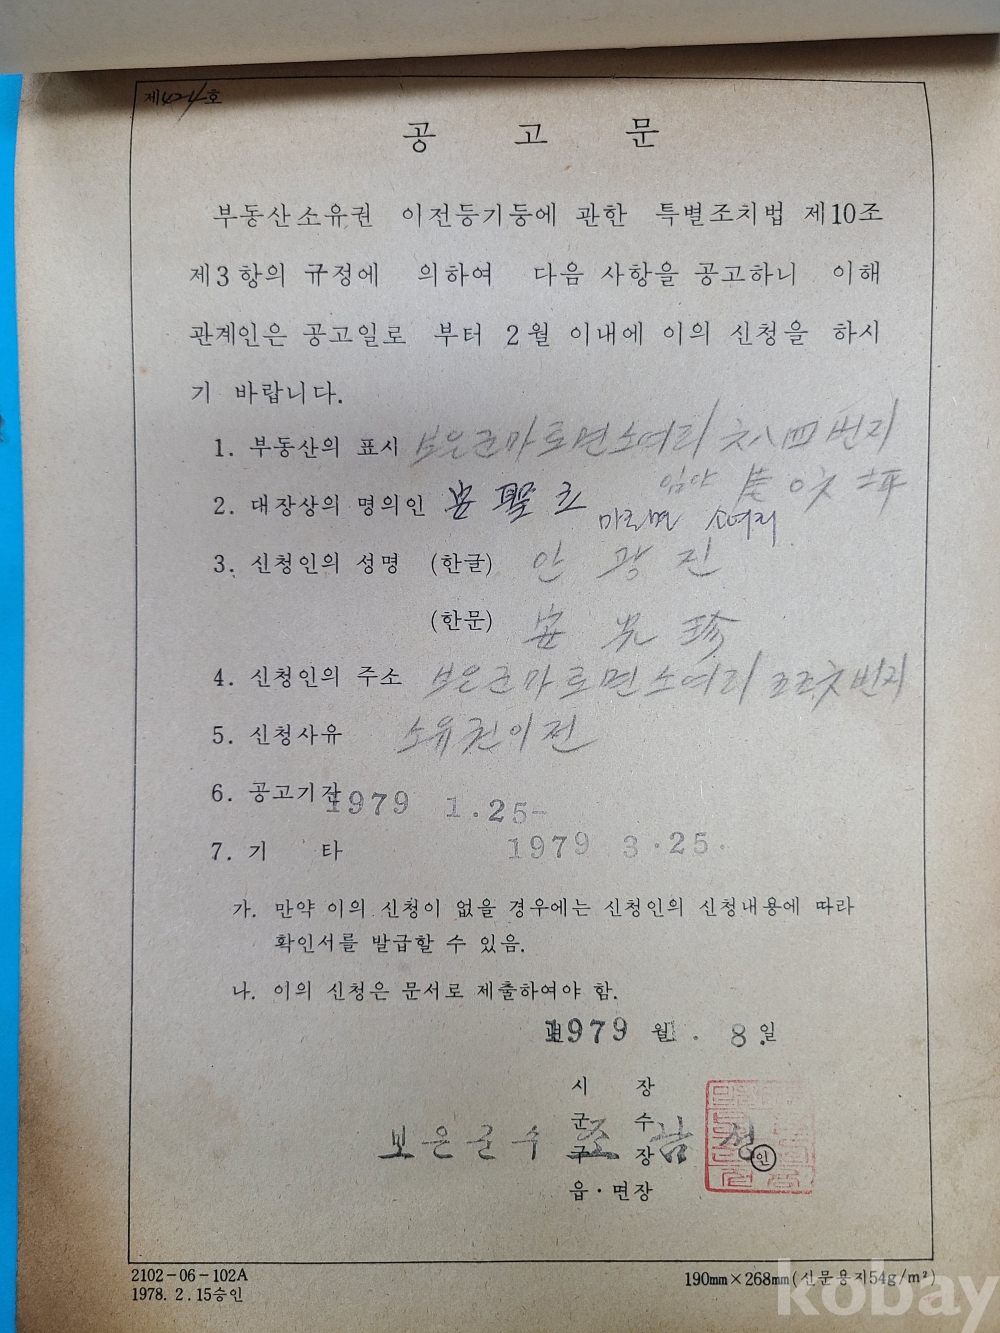 제424호
공 고 문
부동산소유권 이전등기등에 관한 특별조치법 제10조
제3항의 규정에 의하여 다음 사항을 공고하니 이해
관계인은 공고일로 부터 2월 이내에 이의 신청을 하시
기 바랍니다.
1. 부동산의 표시 보은군마로면소여리 六八四번지
임야
2. 대장상의 명의인 安聖
마로면 소여리
3. 신청인의 성명 (한글) 안 광 진
(한문) 安 光 珍
4. 신청인의 주소 보은군마로면소여리 번지
5. 신청사유 소유권이전
6. 공고기간 1979 1.25-
7. 기 타 1979 3.25.
가. 만약 이의 신청이 없을 경우에는 신청인의 신청내용에 따라
확인서를 발급할 수 있음.
나. 이의 신청은 문서로 제출하여야 함.
1979 월 8.일
시 장
군 수
보은군수 조 남 성 인
구 장
읍·면장
2102-06-102A
1978. 2.15승인
190mm×268mm(신문용지54g/m²)
kobay